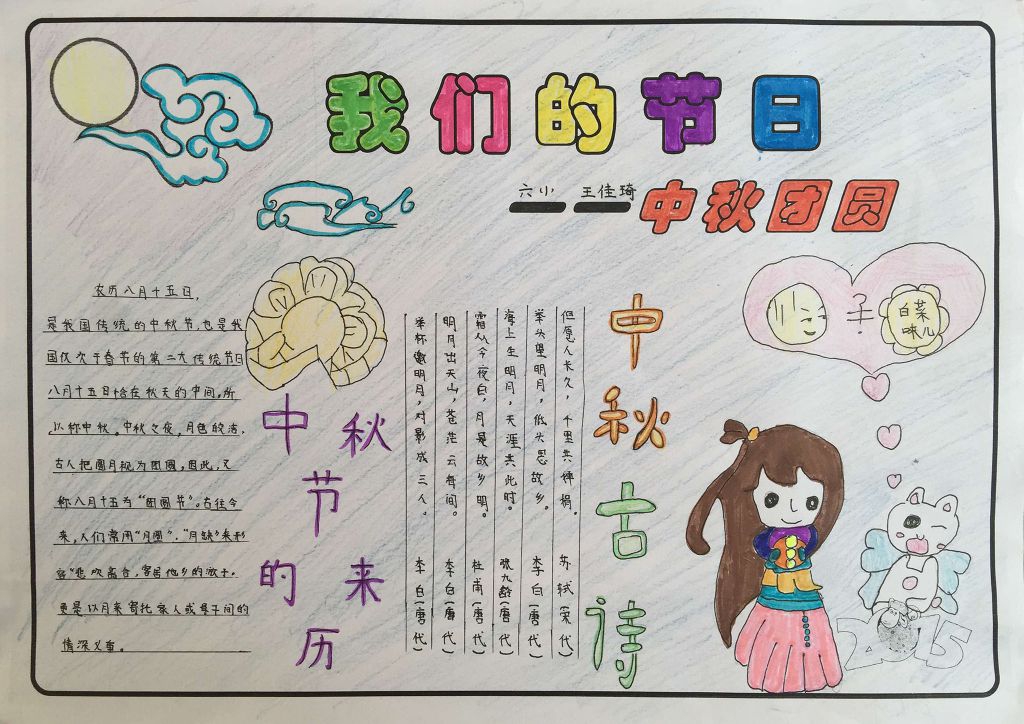 我们的节日
六小 王佳琦
中秋团圆
农历八月十五日，
是我国传统的中秋节，也是我
国仅次于春节的第二大传统节日
八月十五日恰在秋天的中间，所
以称中秋。中秋之夜，月色皎洁，
古人把圆月视为团圆，因此，又
称八月十五为“团圆节”。古往今
来，人们常用“月圆”、“月缺”来形
容“悲欢离合，客居他乡的游子。
更是以月来寄托亲人或母子间的
情深义重。
中秋
节
的来
历
中秋古诗
但愿人长久，千里共婵娟。 苏轼（宋代）
举头望明月，低头思故乡。 李白（唐代）
海上生明月，天涯共此时。 张九龄（唐代）
露从今夜白，月是故乡明。 杜甫（唐代）
明月出天山，苍茫云海间。 李白（唐代）
举杯邀明月，对影成三人。 李白（唐代）
白菜
味儿
2015